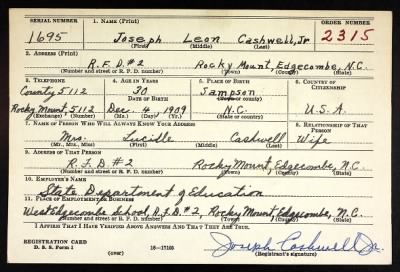 SERIAL NUMBER 1. NAME (Print) ORDER NUMBER
1695 Joseph Leon Cashwell, Jr 2315
(First) (Middle) (Last)
2. ADDRESS (Print)
R.F.D. #2 Rocky Mount, Edgecombe, N.C.
(Number and street or R. F. D. number) (Town) (County) (State)
3. TELEPHONE 4. AGE IN YEARS 5. PLACE OF BIRTH 6. COUNTRY OF CITIZENSHIP
County 5112 30 Sampson
DATE OF BIRTH (Town or county)
Rocky Mount 5112 Dec. 4 1909 N.C. U.S.A.
(Exchange) (Number) (Mo.) (Day) (Yr.) (State or country)
7. NAME OF PERSON WHO WILL ALWAYS KNOW YOUR ADDRESS 8. RELATIONSHIP OF THAT PERSON
Mrs. Lucille Cashwell Wife
(Mr., Mrs., Miss) (First) (Middle) (Last)
9. ADDRESS OF THAT PERSON
R.F.D. #2 Rocky Mount, Edgecombe, N.C.
(Number and street or R. F. D. number) (Town) (County) (State)
10. EMPLOYER'S NAME
State Department of Education
11. PLACE OF EMPLOYMENT OR BUSINESS
West Edgecombe School, R.F.D. #2, Rocky Mount, Edgecombe, N.C.
(Number and street or R. F. D. number) (Town) (County) (State)
I AFFIRM THAT I HAVE VERIFIED ABOVE ANSWERS AND THAT THEY ARE TRUE.
REGISTRATION CARD
D. S. S. Form 1 (over) 16—17105 Joseph Cashwell Jr.
(Registrant's signature)